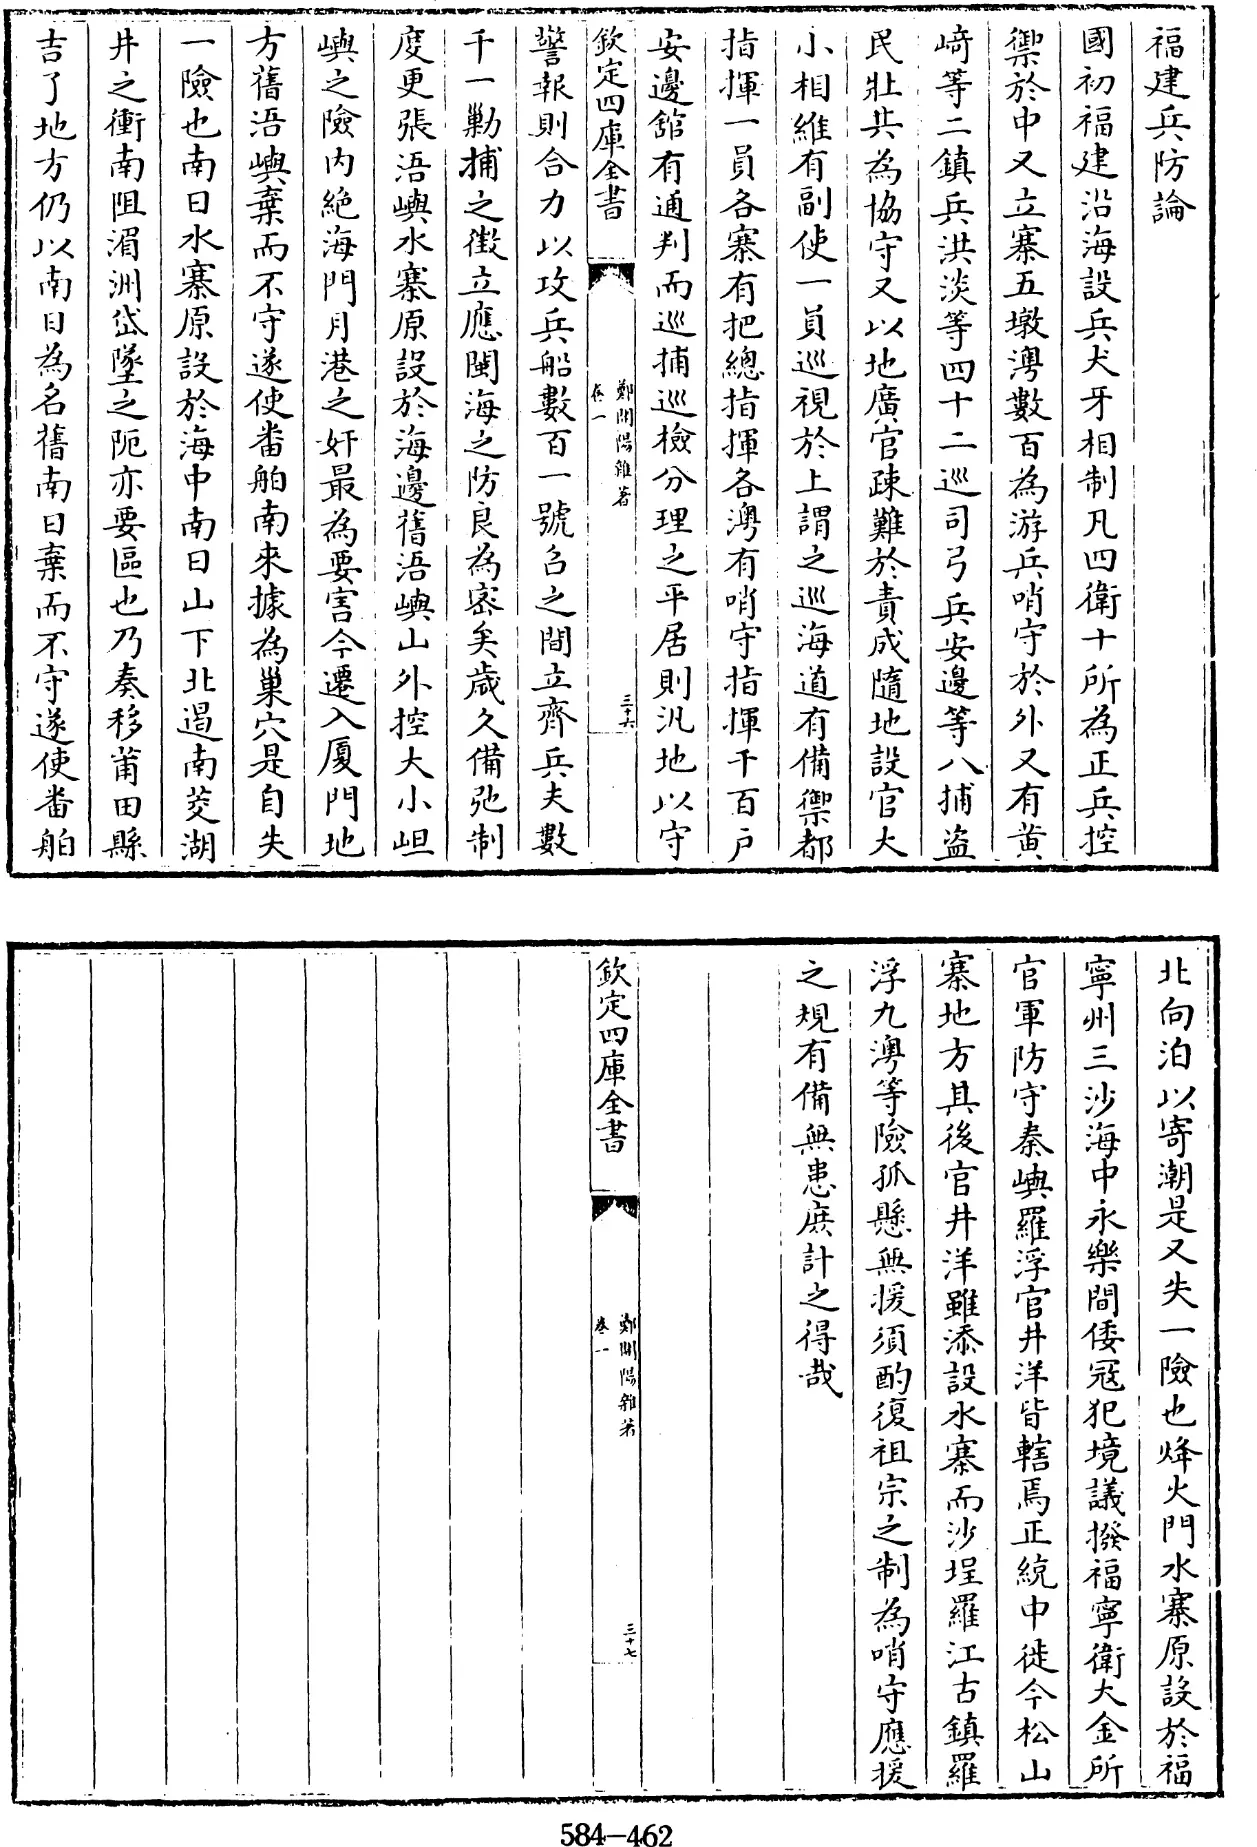 福建兵防論
國初福建沿海設兵犬牙相制凡四衛十所為正兵控
禦於中又立寨五墩澳數百為游兵哨守於外又有黄
﨑等二鎮兵洪淡等四十二巡司弓兵安邊等八捕盗
民壯共為協守又以地廣官疎難於責成隨地設官大
小相維有副使一員巡視於上謂之巡海道有備禦都
指揮一員各寨有把總指揮各澳有哨守指揮千百户
安邊舘有通判而巡捕巡檢分理之平居則汛地以守
欽定四庫全書
鄭開陽雜著
卷一
三十六
警報則合力以攻兵船數百一號召之間立齊兵夫數
千一勦捕之徵立應閩海之防良為宻矣歲久備弛制
度更張浯嶼水寨原設於海邊舊浯嶼山外控大小岨
嶼之險内絶海門月港之奸最為要害今遷入厦門地
方舊浯嶼棄而不守遂使畨舶南來據為巢穴是自失
一險也南日水寨原設於海中南日山下北遏南茭湖
井之衝南阻湄洲岱墜之阨亦要區也乃奏移莆田縣
吉了地方仍以南日為名舊南日棄而不守遂使畨舶
北向泊以寄潮是又失一險也烽火門水寨原設於福
寧州三沙海中永樂間倭冦犯境議撥福寧衛大金所
官軍防守秦嶼羅浮官井洋皆轄焉正統中徙今松山
寨地方其後官井洋雖添設水寨而沙埕羅江古鎮羅
浮九澳等險孤懸無援須酌復祖宗之制為哨守應援
之規有備無患庻計之得哉
欽定四庫全書
鄭開陽雜著
卷一
三十七
584-462